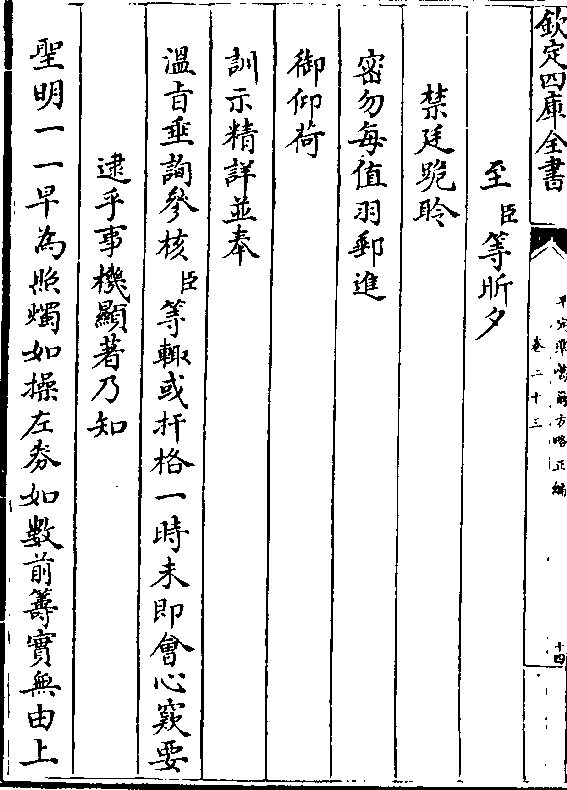 欽定四庫全書
平定準噶爾方略正編
卷二十三
十四
至臣等昕夕
禁廷跪聆
密勿每值羽郵進
御仰荷
訓示精詳並奉
溫旨垂詢參核臣等輙或扞格一時未即會心窽要
逮乎事機顯著乃知
聖明一一早為照燭如操左券如數前籌實無由上